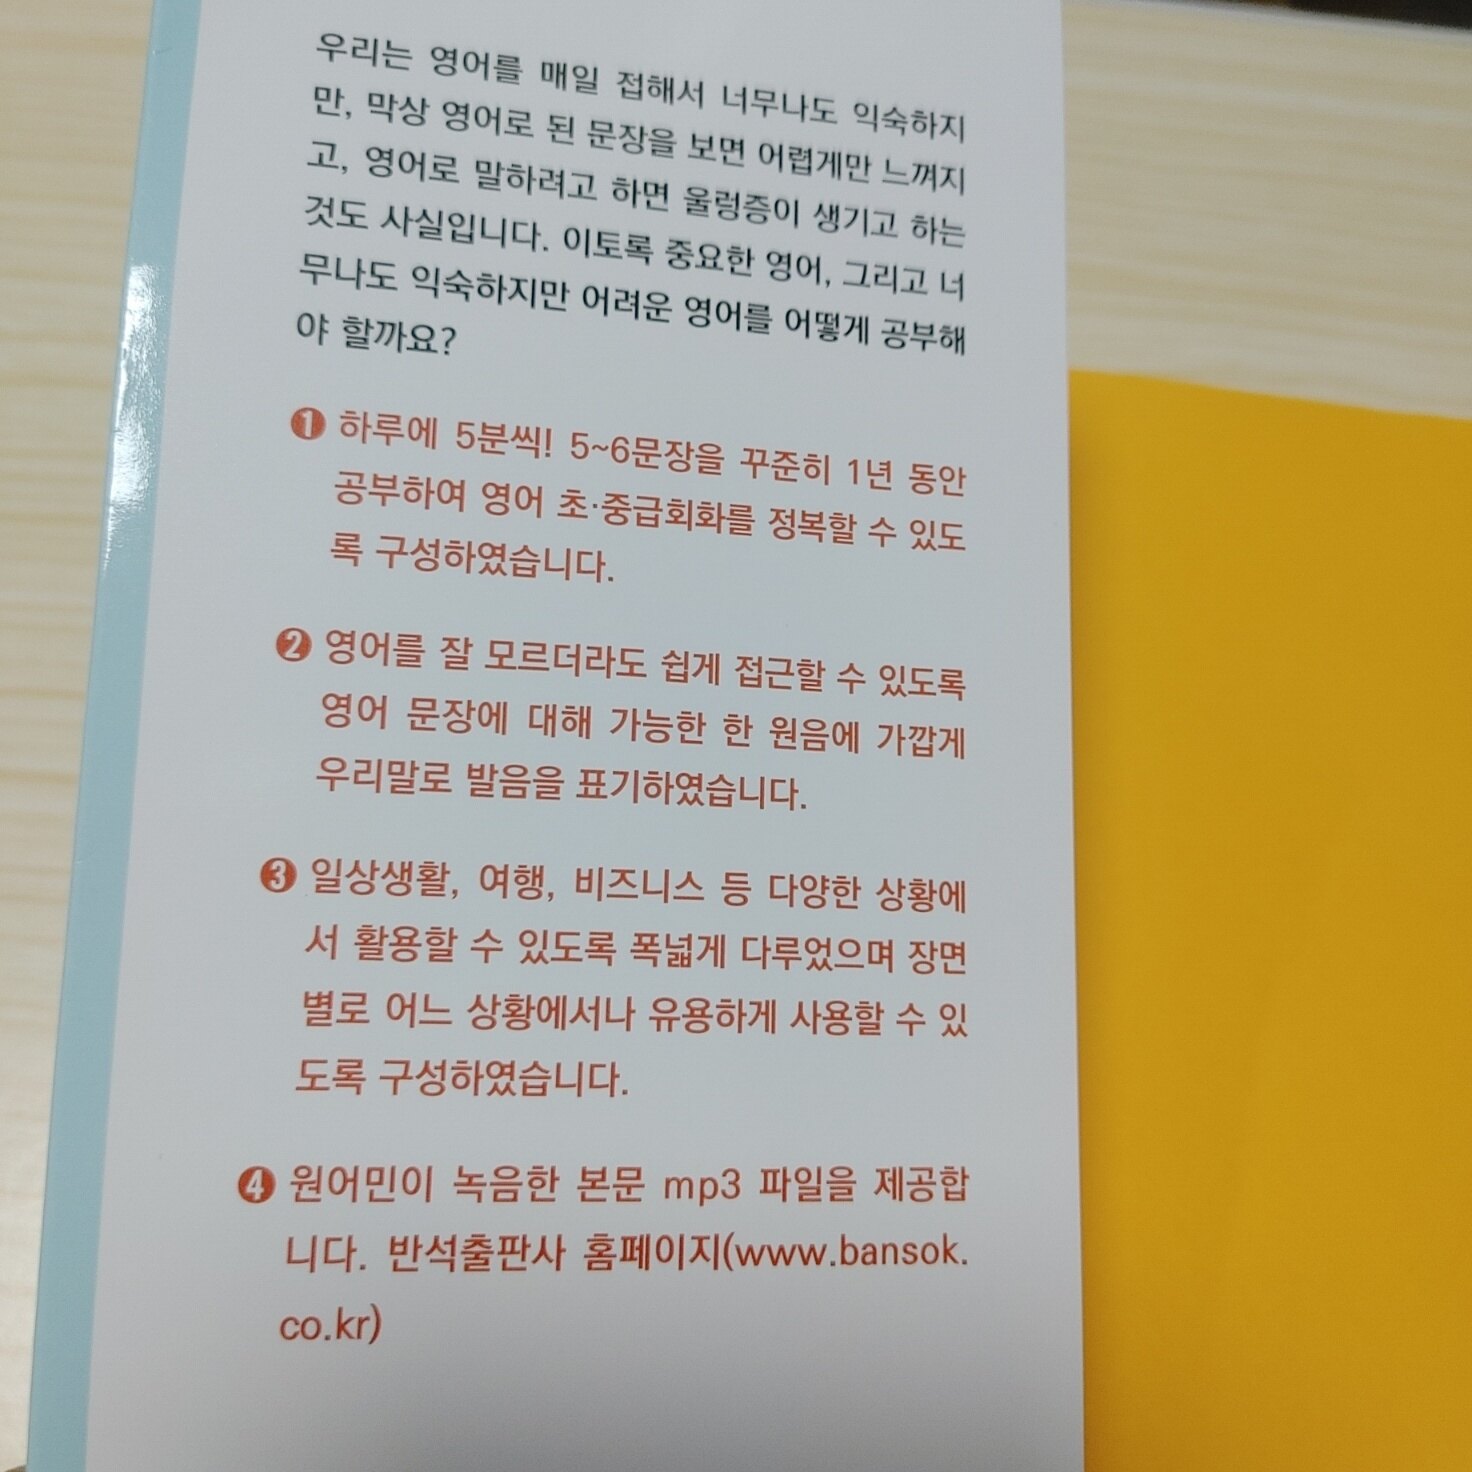 우리는 영어를 매일 접해서 너무나도 익숙하지
만, 막상 영어로 된 문장을 보면 어렵게만 느껴지
고, 영어로 말하려고 하면 울렁증이 생기고 하는
것도 사실입니다. 이토록 중요한 영어, 그리고 너
무나도 익숙하지만 어려운 영어를 어떻게 공부해
야 할까요?
❶ 하루에 5분씩! 5~6문장을 꾸준히 1년 동안
공부하여 영어 초·중급회화를 정복할 수 있도
록 구성하였습니다.
❷ 영어를 잘 모르더라도 쉽게 접근할 수 있도록
영어 문장에 대해 가능한 한 원음에 가깝게
우리말로 발음을 표기하였습니다.
❸ 일상생활, 여행, 비즈니스 등 다양한 상황에
서 활용할 수 있도록 폭넓게 다루었으며 장면
별로 어느 상황에서나 유용하게 사용할 수 있
도록 구성하였습니다.
❹ 원어민이 녹음한 본문 mp3 파일을 제공합
니다. 반석출판사 홈페이지(www.bansok.
co.kr)